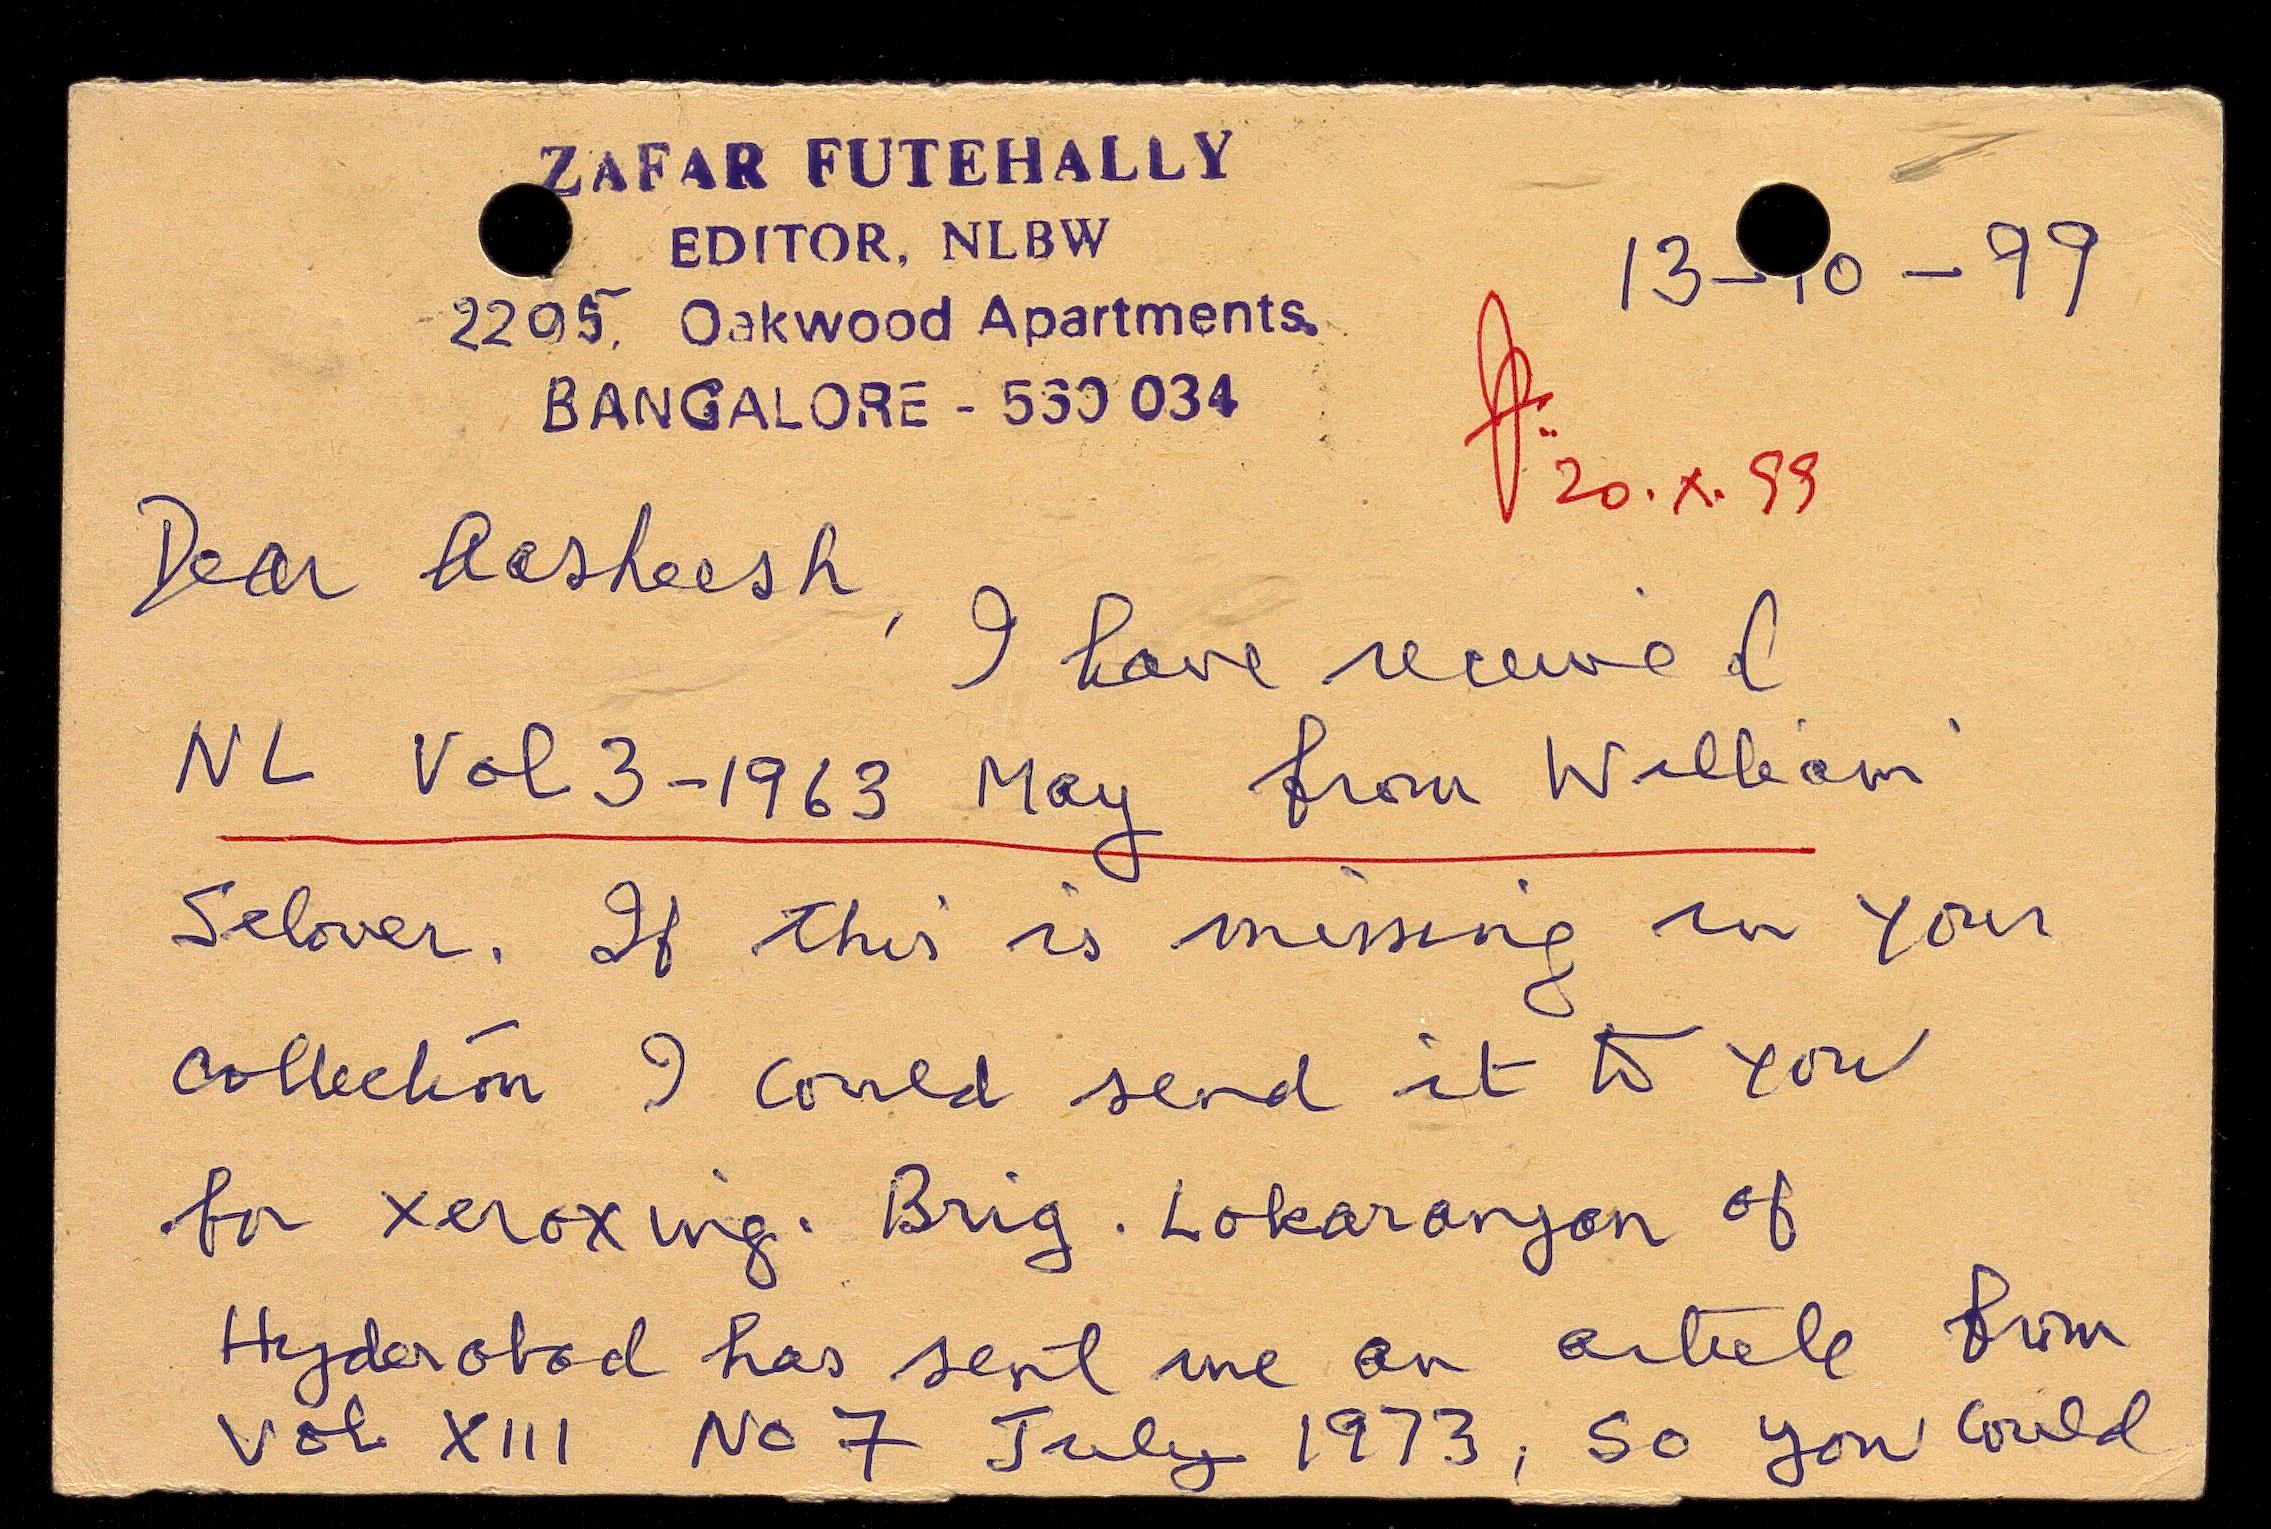 ZAFAR FUTEHALLY
EDITOR, NLBW
2205, Oakwood Apartments,
BANGALORE - 560 034
13-10-99
20.X.99
Dear Aasheesh,
I have received
NL Vol 3-1963 May from William
Selover. If this is missing in your
collection I could send it to you
for xeroxing. Brig. Lokaranjan of
Hyderabad has sent me an article from
Vol XIII No 7 July 1973, so you could